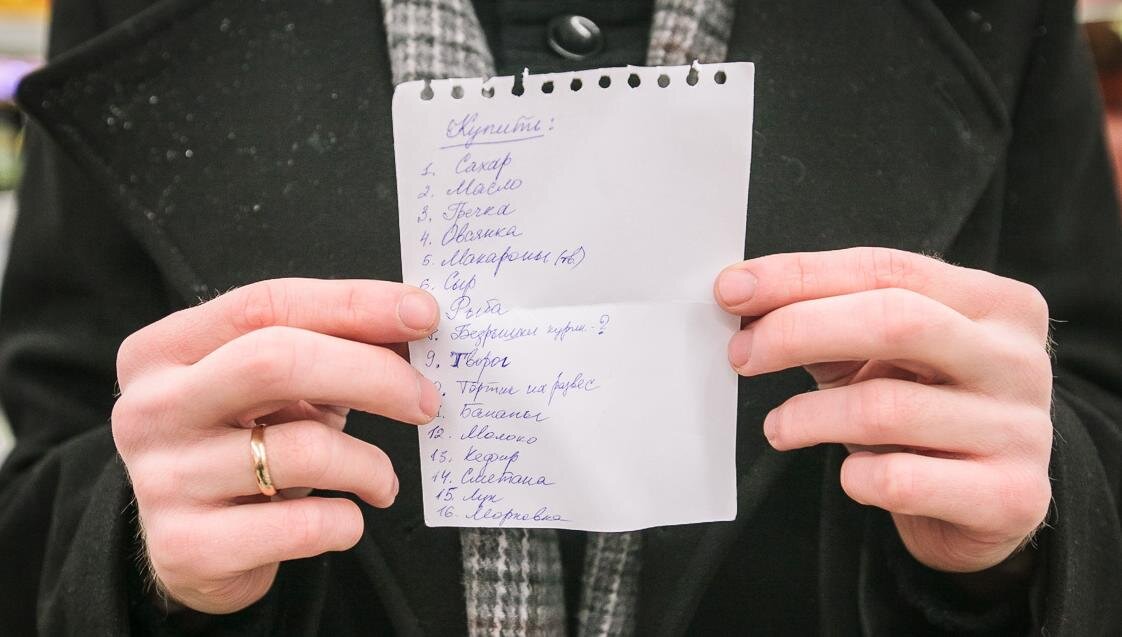 Купить:
1. Сахар
2. Масло
3. Гречка
4. Овсянка
5. Макароны (тв)
6. Сыр
Рыба
8. Безрышки курин. ?
9. Творог
Тортик на развес
1. Бананы
12. Молоко
13. Кефир
14. Сметана
15. Лук
16. Морковка